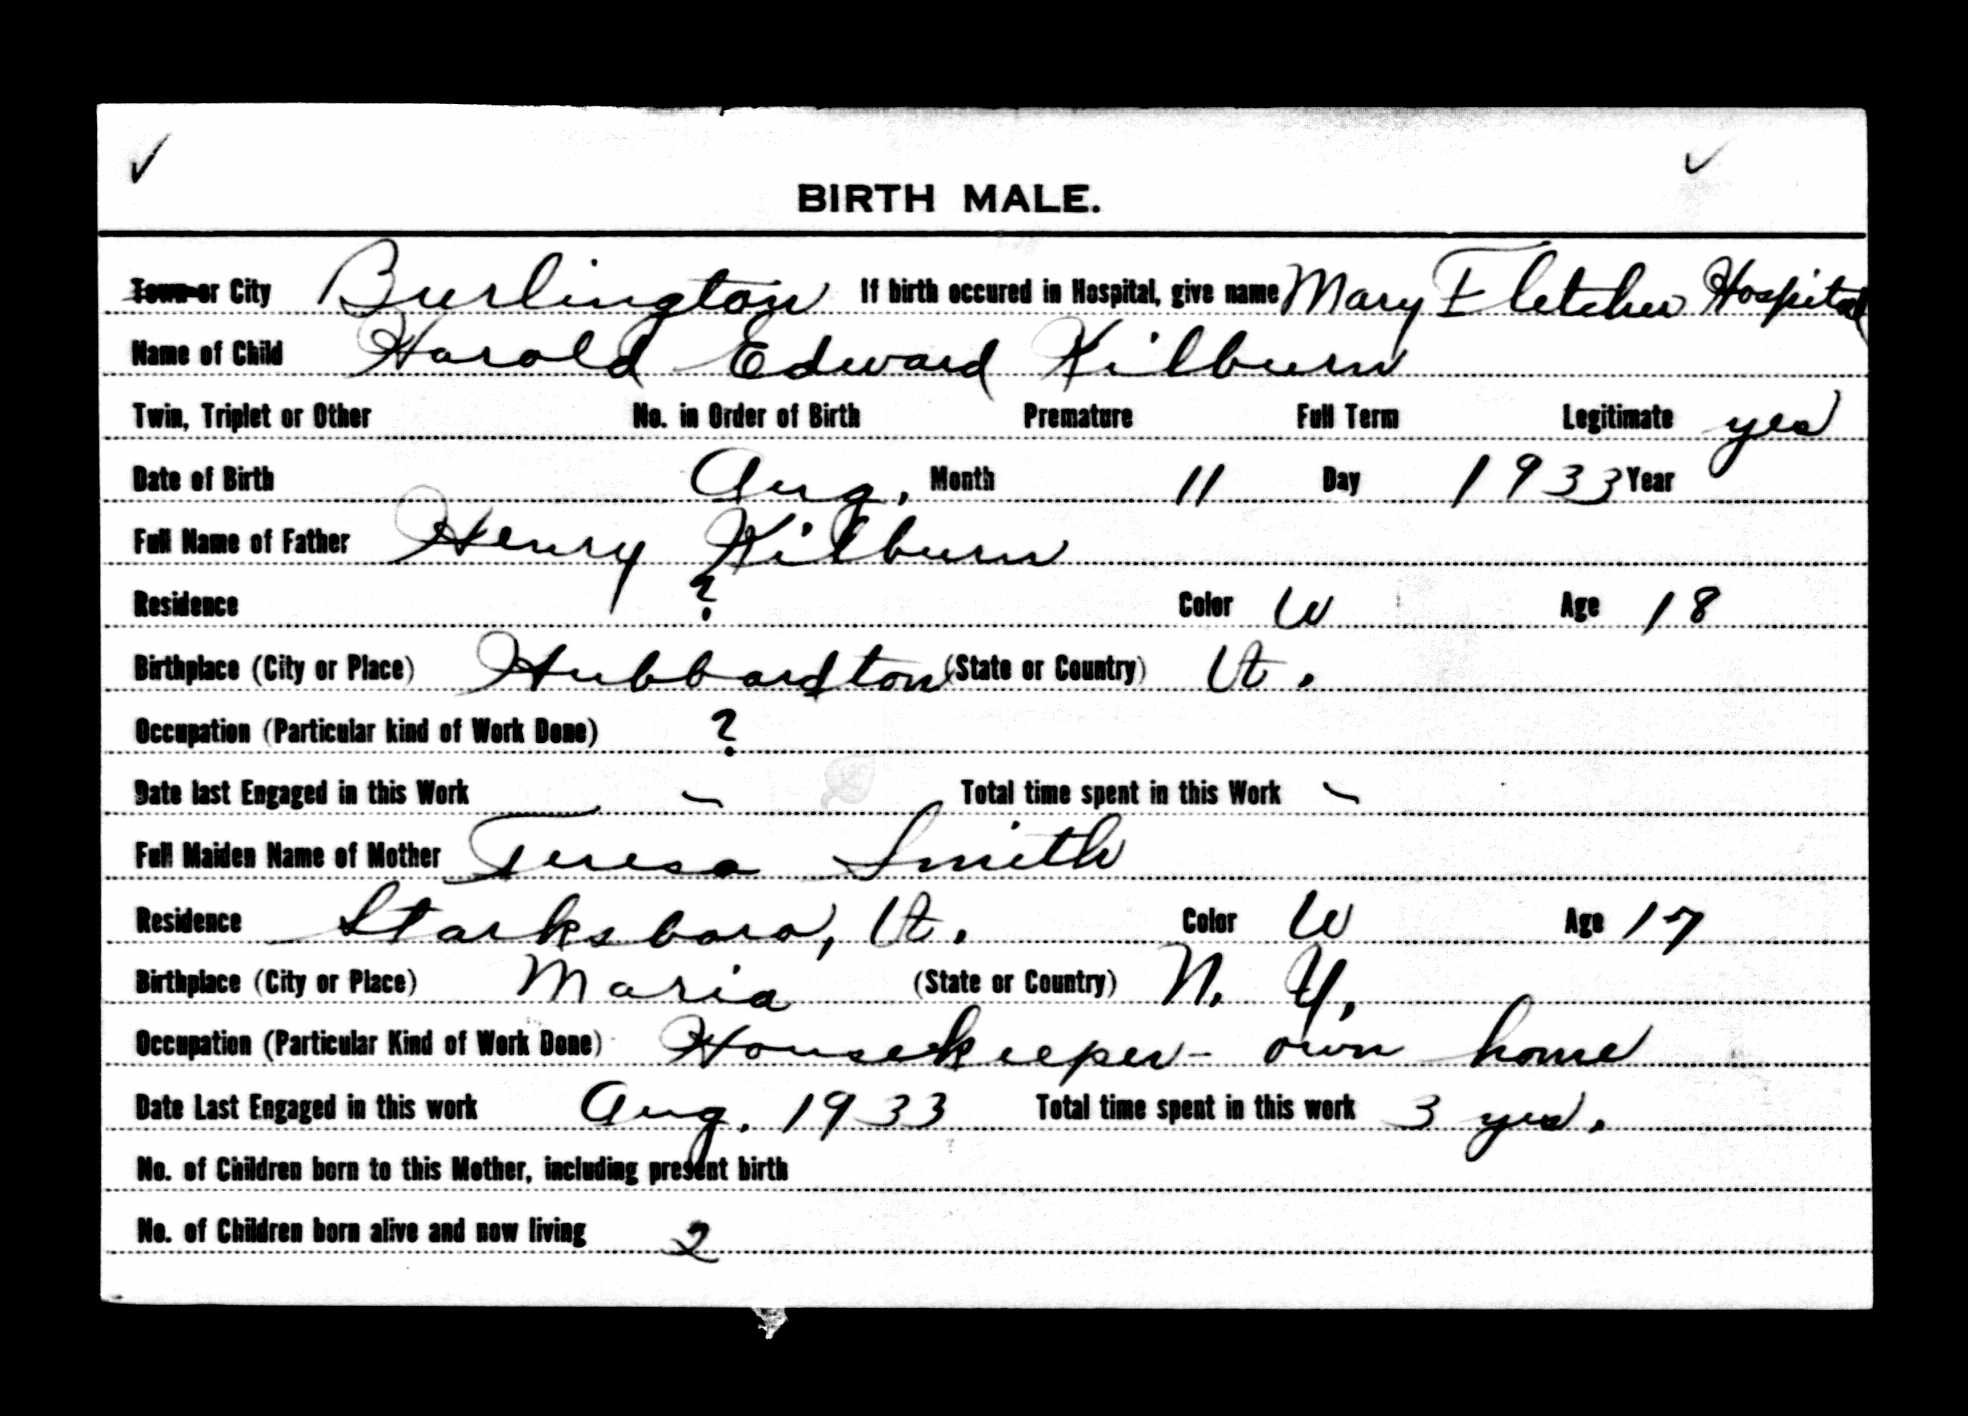 BIRTH MALE.
Town or City Burlington If birth occured in Hospital, give name Mary Fletcher Hospital
Name of Child Harold Edward Kilburn
Twin, Triplet or Other No. in Order of Birth Premature Full Term Legitimate yes
Date of Birth Aug. Month 11 Day 1933 Year
Full Name of Father Henry Kilburn
Residence ? Color W Age 18
Birthplace (City or Place) Hubbardton (State or Country) Vt.
Occupation (Particular kind of Work Done) ?
Date last Engaged in this Work – Total time spent in this Work –
Full Maiden Name of Mother Teresa Smith
Residence Starksboro, Vt. Color W Age 17
Birthplace (City or Place) Moria (State or Country) N. Y.
Occupation (Particular Kind of Work Done) Housekeeper - own home
Date Last Engaged in this work Aug. 1933 Total time spent in this work 3 yrs.
No. of Children born to this Mother, including present birth
No. of Children born alive and now living 2